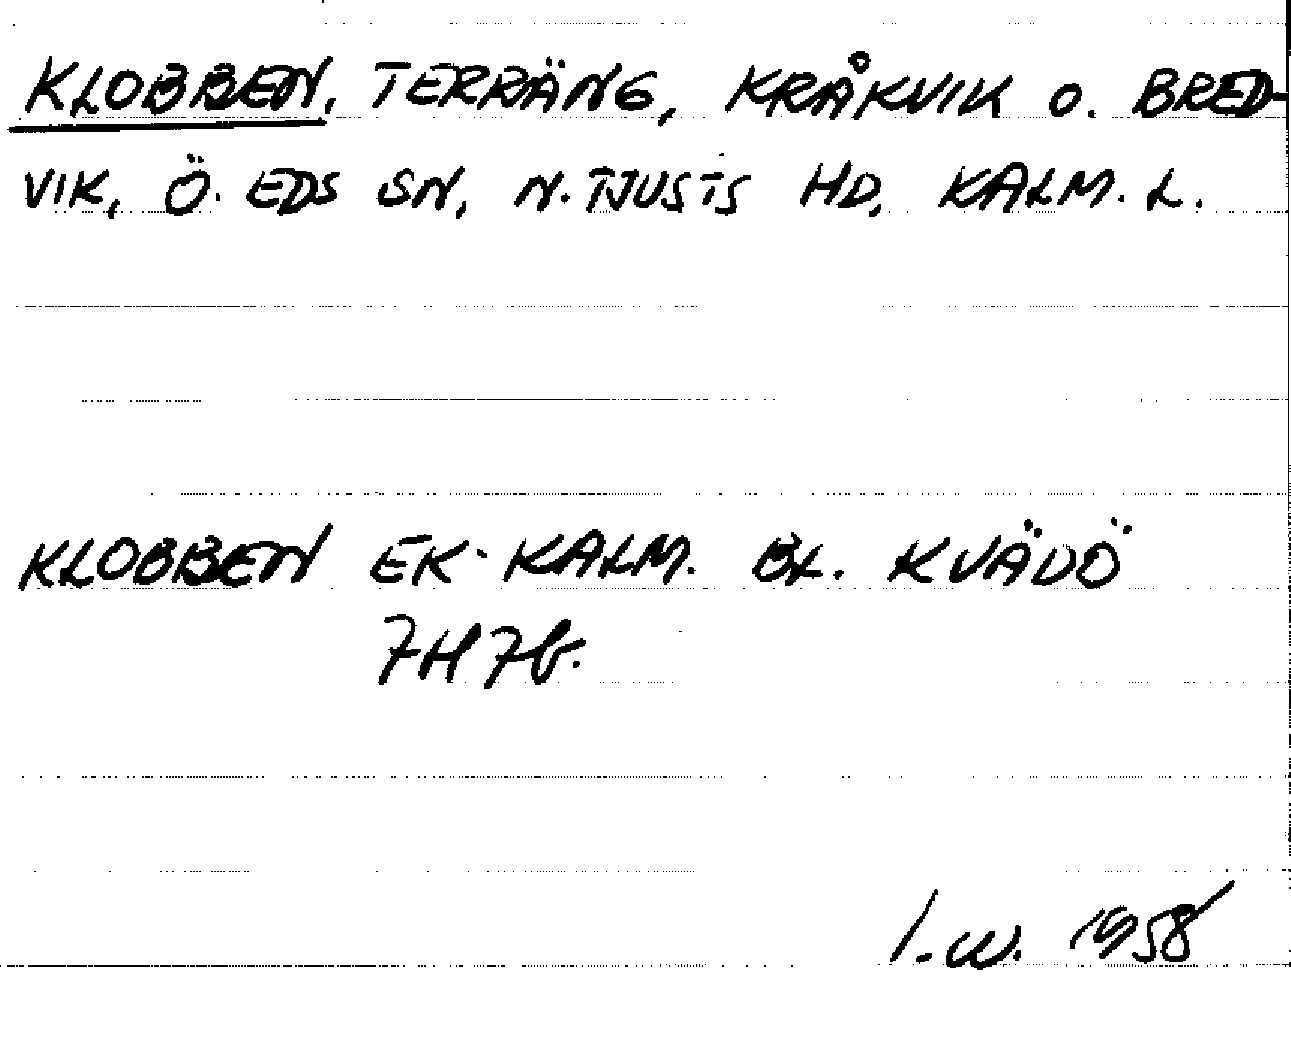 KLOBBEN, TERRÄNG, KRÅKVIK O. BRED-
VIK, Ö. EDS SN, N. TJUSTS HD, KALM. L.
KLOBBEN EK-KALM. BL. KVÄDÖ
7H7b.
I.W. 1958